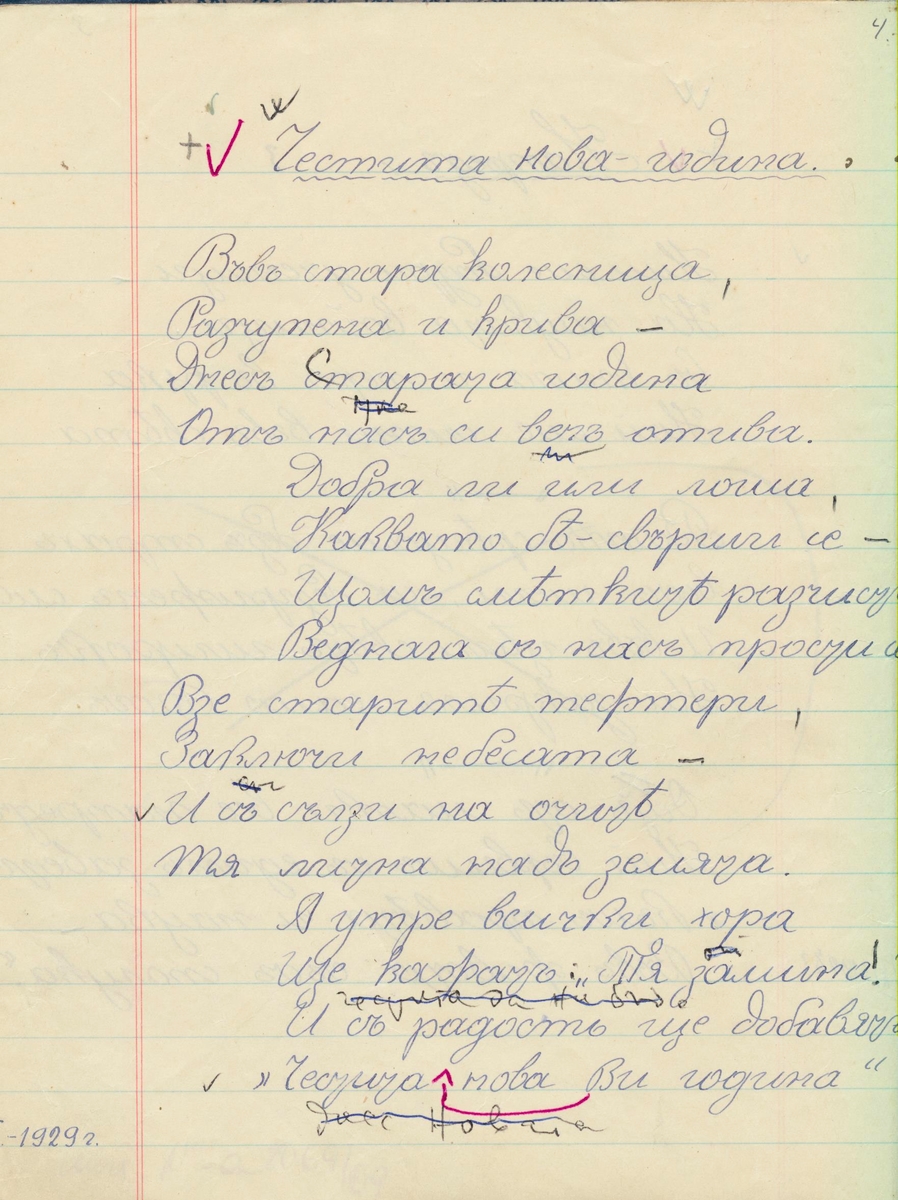 4.
Честита нова година.
Във­ъ стара колесница,
Разчупена и крива –
Днесъ Старата година
Отъ насъ си вечъ отива.
Добра ли или лоша,
Каквато бѣ – свърши се –
Щомъ смѣткитѣ разчисти
Веднага съ насъ прости с
Взе старитѣ тефтери,
Заключи небесата –
И съ сълзи на очитѣ
Тя литна надъ земята.
А утре всички хора
Ще кажатъ: „Тя замина!
И съ радость ще добавятъ
„Честита нова Ви година“
-1929 г.